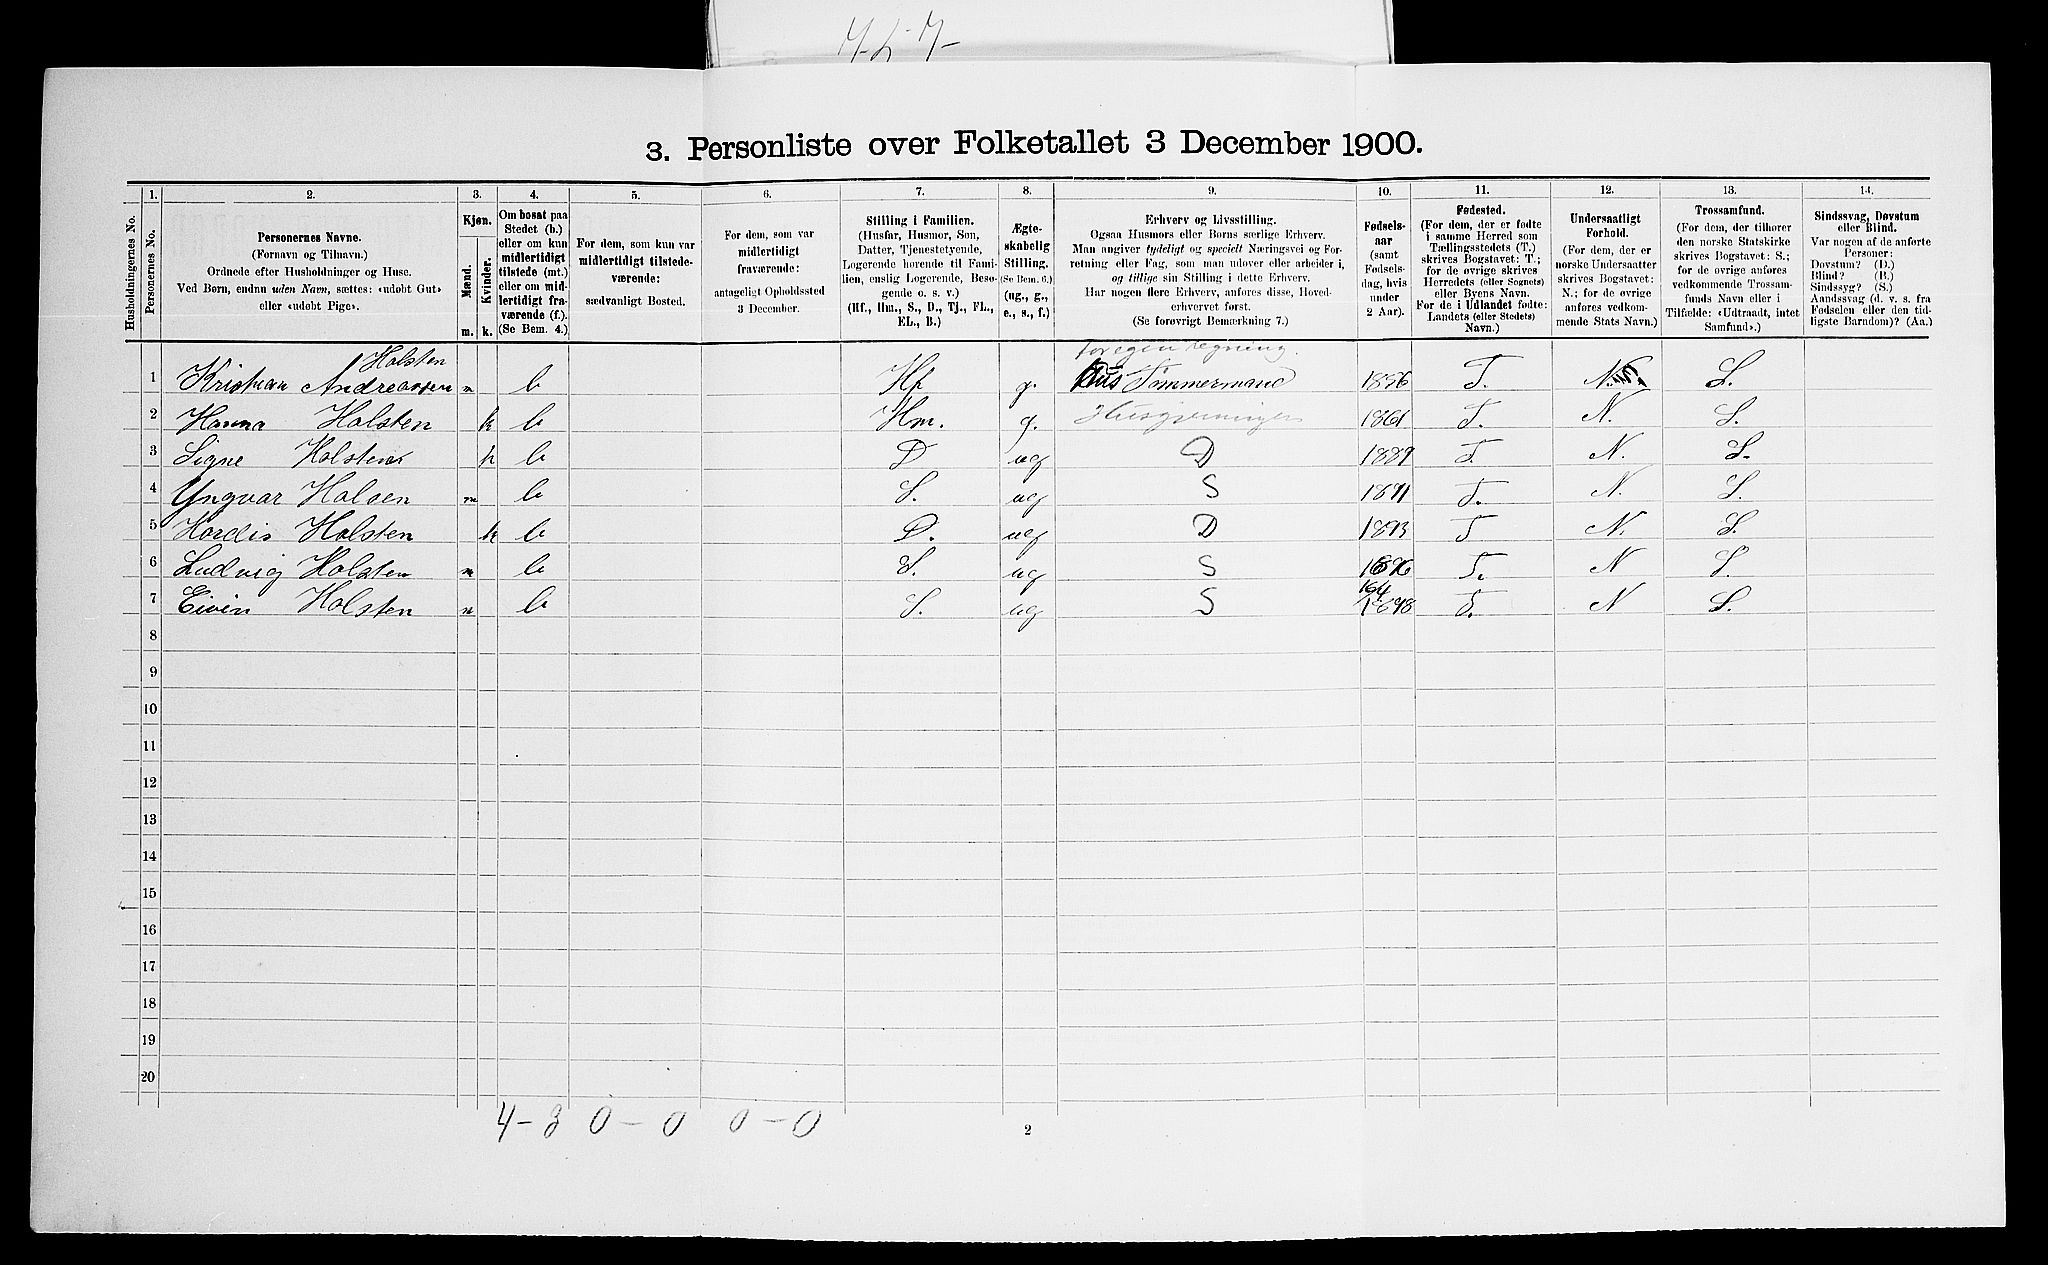 3. Personliste over Folketallet 3 December 1900.
1. 2. 3. 4. 5. 6. 7. 8. 9. 10. 11. 12. 13. 14.
Husholdningernes No.
Personernes No.
Personernes Navne.
(Fornavn og Tilnavn.)
Ordnede efter Husholdninger og Huse.
Ved Børn, endnu uden Navn, sættes: «udøbt Gut»
eller «udøbt Pige».
Kjøn.
Mænd.
Kvinder.
m. k.
Om bosat paa
Stedet (b.)
eller om kun
midlertidigt
tilstede (mt.)
eller om mid-
lertidigt fra-
værende (f.)
(Se Bem. 4.)
For dem, som kun var
midlertidigt tilstede-
værende:
sædvanligt Bosted.
For dem, som var
midlertidigt
fraværende:
antageligt Opholdssted
3 December.
Stilling i Familien.
(Husfar, Husmor, Søn,
Datter, Tjenestetyende,
Logerende hørende til Fami-
lien, enslig Logerende, Besø-
gende o. s. v.)
(Hf., Hm., S., D., Tj., FL.,
EL., B.)
Ægte-
skabelig
Stilling.
(Se Bem. 6.)
(ug., g.,
e., s., f.)
Erhverv og Livsstilling.
Ogsaa Husmors eller Børns særlige Erhverv.
Man angiver tydeligt og specielt Næringsvei og For-
retning eller Fag, som man udøver eller arbeider i,
og tillige sin Stilling i dette Erhverv.
Har nogen flere Erhverv, anføres disse, Hoved-
erhvervet først.
(Se forøvrigt Bemærkning 7.)
Fødsels-
aar
(samt
Fødsels-
dag, hvis
under
2 Aar).
Fødested.
(For dem, der er fødte
i samme Herred som
Tællingsstedets (T.)
skrives Bogstavet: T.;
for de øvrige skrives
Herredets (eller Sognets)
eller Byens Navn.
For de i Udlandet fødte:
Landets (eller Stedets)
Navn.)
Undersaatligt
Forhold.
(For dem, der er
norske Undersaatter
skrives Bogstavet:
N.; for de øvrige
anføres vedkom-
mende Stats Navn.)
Trossamfund.
(For dem, der tilhører
den norske Statskirke
skrives Bogstavet: S.;
for de øvrige anføres
vedkommende Trossam-
funds Navn eller i
Tilfælde: «Udtraadt, intet
Samfund».)
Sindssvag, Døvstum
eller Blind.
Var nogen af de anførte
Personer:
Døvstum? (D.)
Blind? (B.)
Sindssyg? (S.)
Aandssvag (d. v. s. fra
Fødselen eller den tid-
ligste Barndom)? (Aa.)
Holsten for egen regning.
1 Kristian Andreassen m b Hf g. Hus Tømmermand T. N. S.
2 Hanna Holsten k b Hm. g. Husgjerninger 1861 T. N. S.
3 Signe Holsten k b D ug D 1889 T. N. S.
4 Yngvar Holsen m b S. ug S 1891 T. N. S.
5 Hordis Holsten k b D. ug D 1893 T N. S.
6 Ludvig Holsten m b S. ug S 1896 T. N S.
7 Eivin Holsten m b S. ug S 16/4 1898 T. N S.
8
9
10
11
12
13
14
15
16
17
18
19
20
4-3 0-0 0-0
2